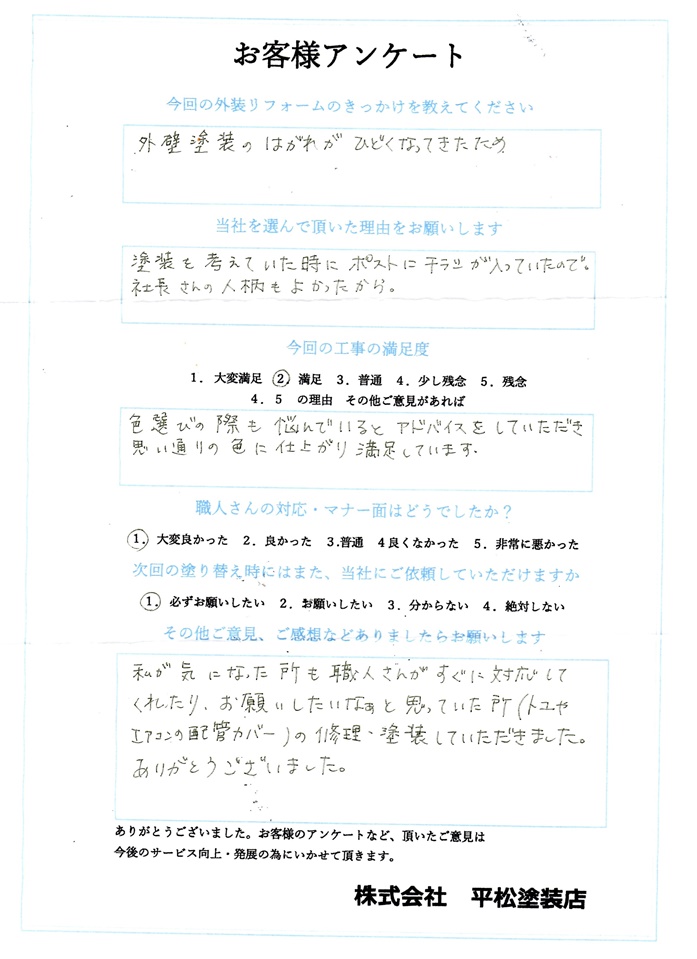 お客様アンケート
今回の外装リフォームのきっかけを教えてください
外壁塗装のはがれがひどくなってきたため
当社を選んで頂いた理由をお願いします
塗装を考えていた時にポストにチラシが入っていたので。
社長さんの人柄もよかったから。
今回の工事の満足度
1. 大変満足 2. 満足 3. 普通 4. 少し残念 5. 残念
4. 5 の理由 その他ご意見があれば
色選びの際も悩んでいるとアドバイスをしていただき
思い通りの色に仕上がり満足しています。
職人さんの対応・マナー面はどうでしたか？
1. 大変良かった 2. 良かった 3.普通 4良くなかった 5. 非常に悪かった
次回の塗り替え時にはまた、当社にご依頼していただけますか
1. 必ずお願いしたい 2. お願いしたい 3. 分からない 4. 絶対しない
その他ご意見、ご感想などありましたらお願いします
私が気になった所も職人さんがすぐに対応して
くれたり、お願いしたいなぁと思っていた所(トユや
エアコンの配管カバー)の修理・塗装していただきました。
ありがとうございました。
ありがとうございました。お客様のアンケートなど、頂いたご意見は
今後のサービス向上・発展の為にいかせて頂きます。
株式会社 平松塗装店